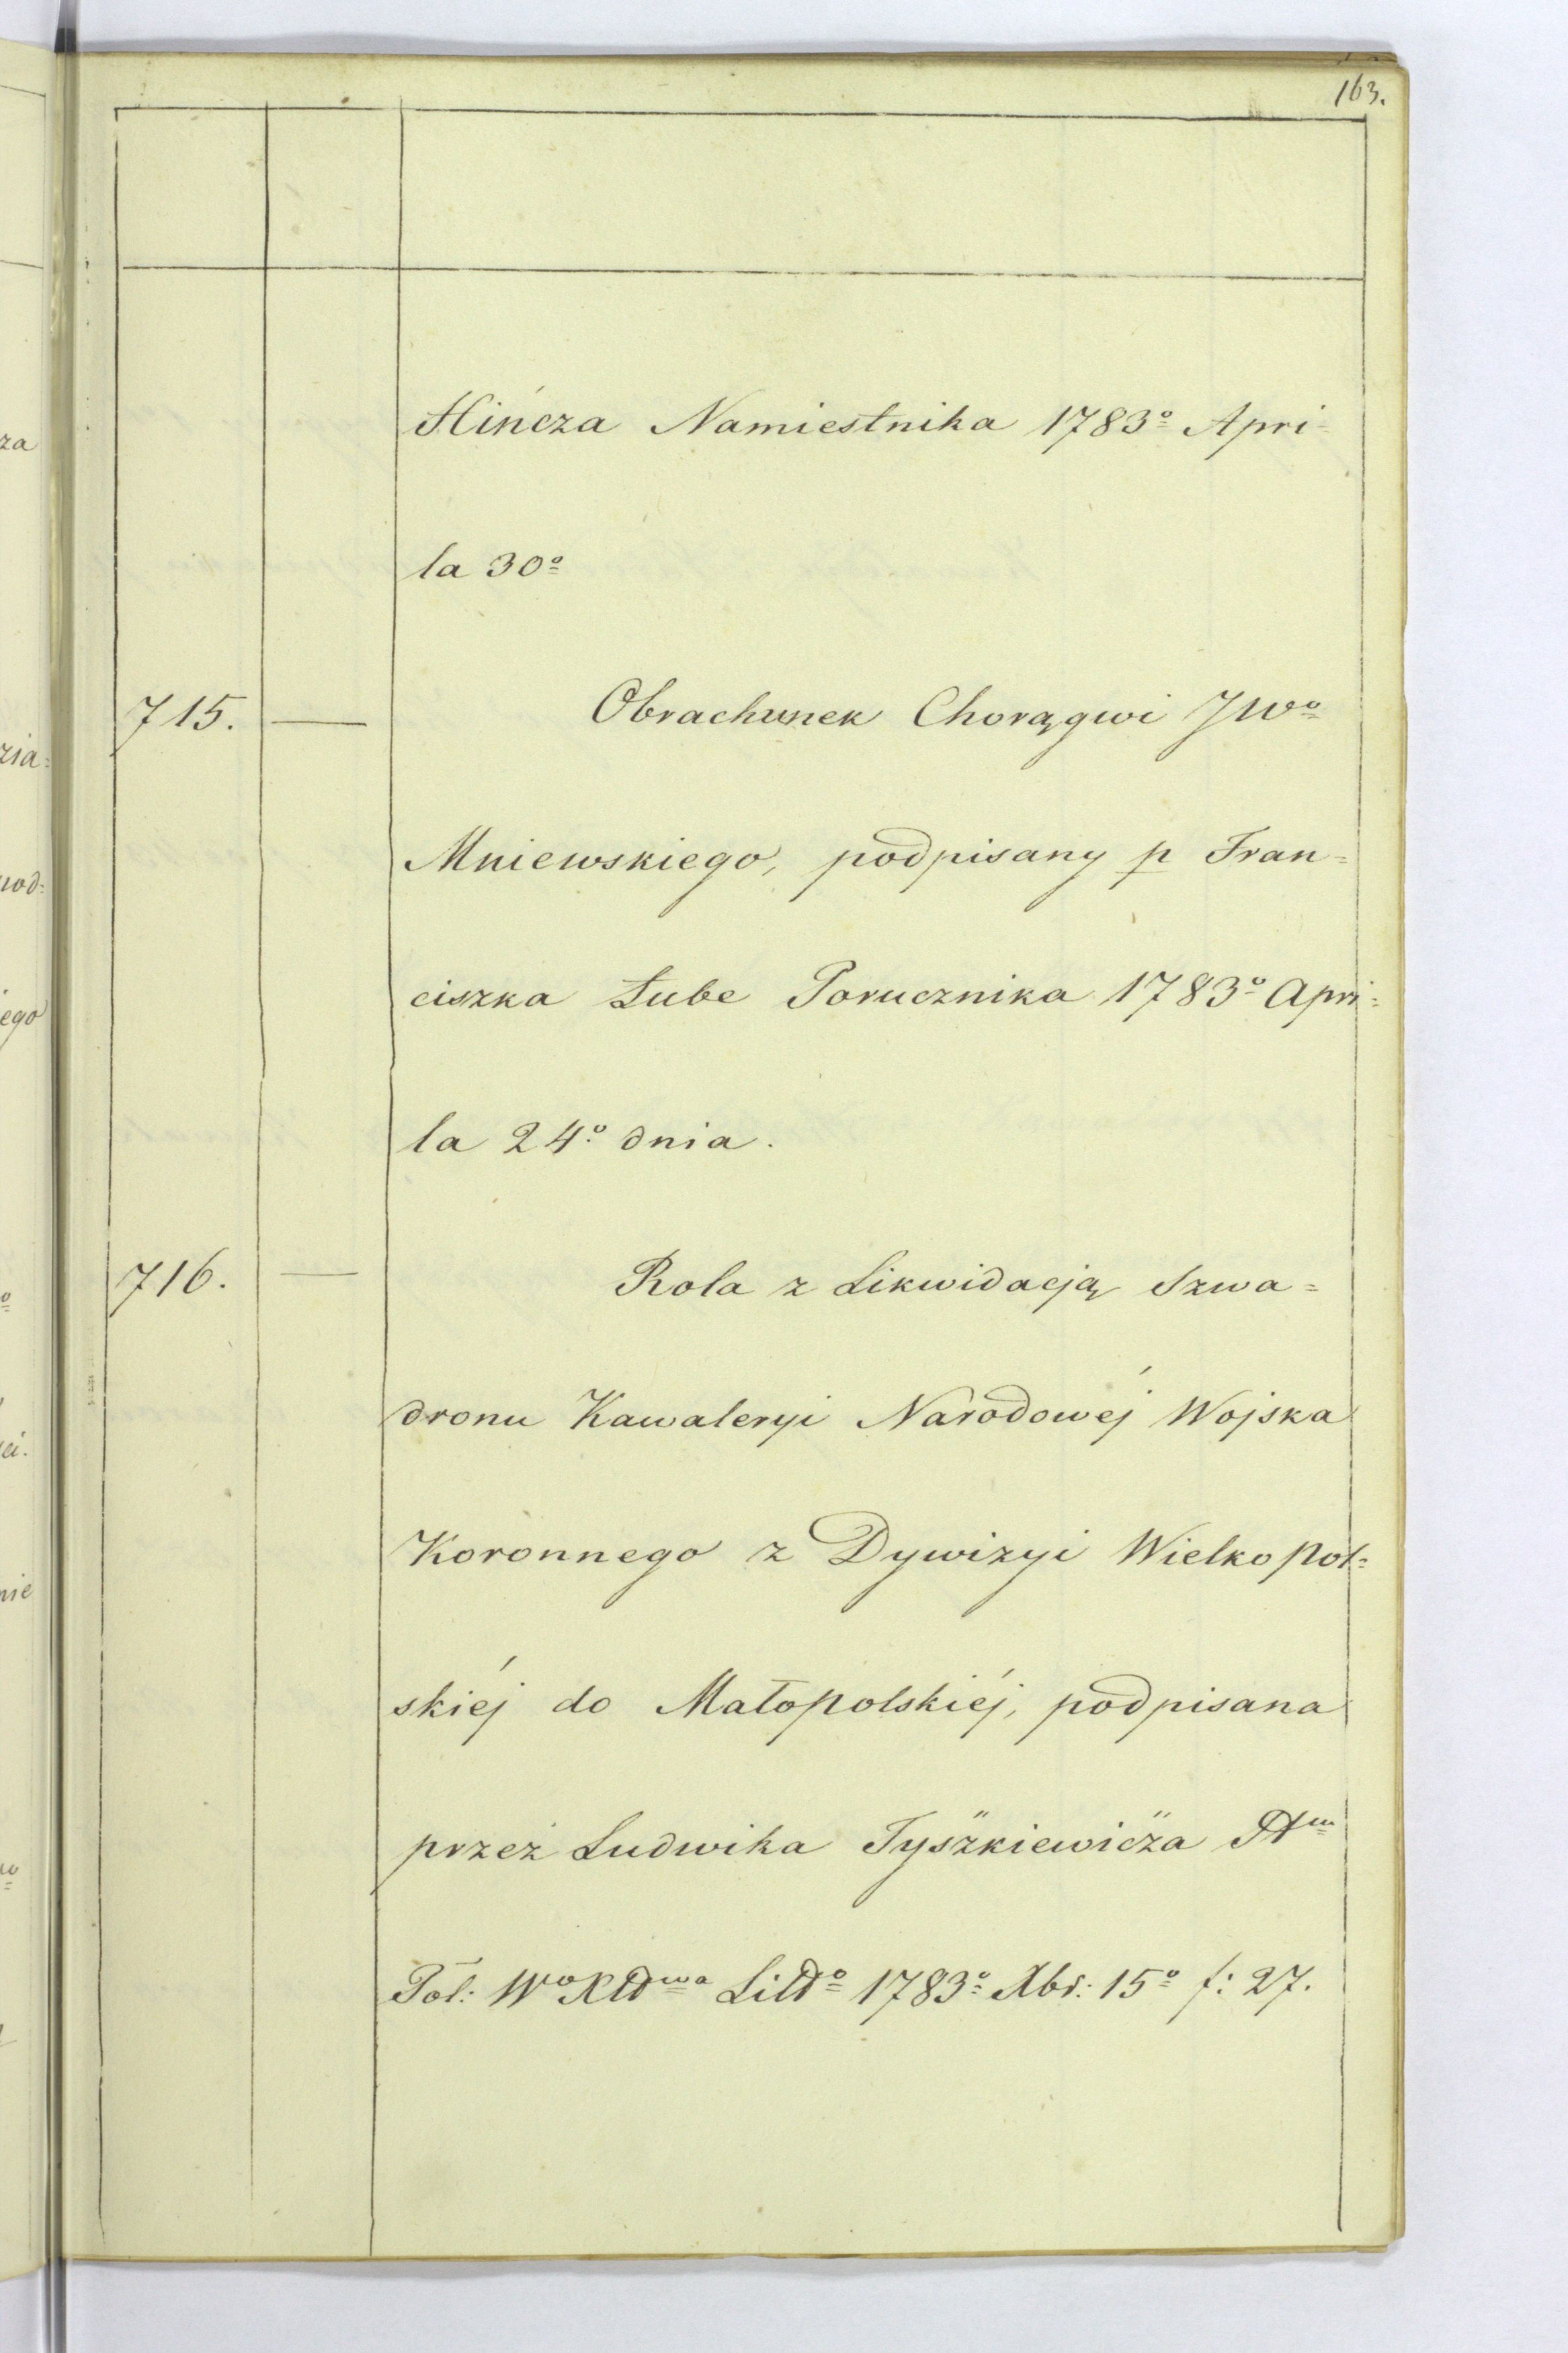 163.
Hińcza Namiestnika 1783º Apri-
la 30º
715. — Obrachunek Chorągwi JWº
Mniewskiego, podpisany p Fran=
ciszka Lube Porucznika 1783º Apri=
la 24º dnia.
716. — Rola z Likwidacją Szwa=
dronu Kawaleryi Narodowéj Wojska
Koronnego z Dywizyi Wielkopol=
skiéj do Małopolskiéj, podpisana
przez Ludwika Tyszkiewicza
Pol: Litº 1783º Xbr: 15º f: 27.